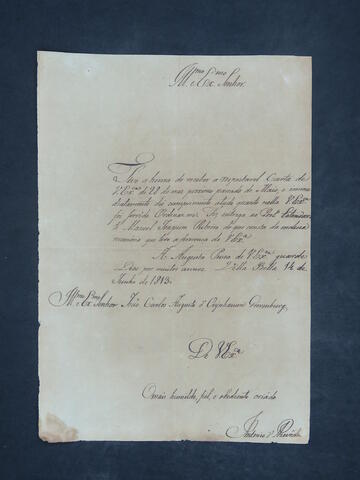 Illmo. e Exmo. Senhor.
Tive a honra de receber a respeitavel Carta de
V.Exca. de 28 do mez proximo passado de Maio, e imme
diatamente dei cumprimento aquelle quanto nella V.Exca.
foi servido Ordenar-me. Fiz entrega ao
Manoel Joaquim Ribeiro do que consta da
que tem a V.Exca.
A Augusta Pessoa de V.Exca. guarde
Deos por muitos annos. Villa Bella 14 de
Junho de 1813.
Illmo. e Exmo. Senhor João Carlos Augusto d'Oeynhausen Gravenburg.
De V.Exca.
O mais humilde, fiel, e obediente criado
Antonio